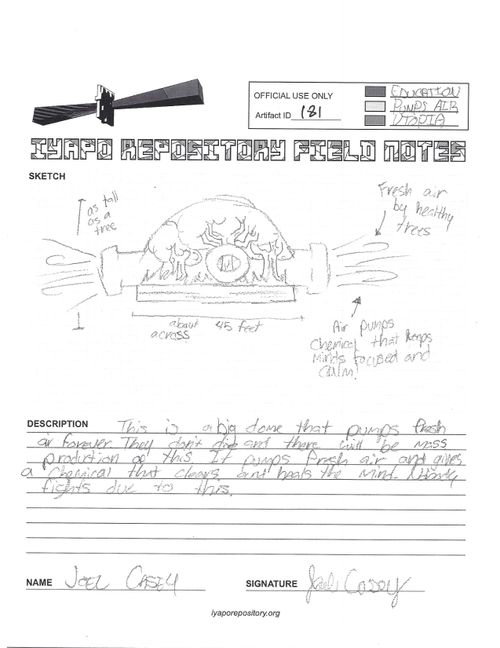 OFFICIAL USE ONLY
Artifact ID 181
EDUCATION
PUMPS AIR
UTOPIA
IYAPO REPOSITORY FIELD NOTES
SKETCH
as tall
as a
tree
Fresh air
by healthy
trees
about 45 feet
across
Air pumps
chemical that keeps
minds focused and
calm!
DESCRIPTION
This is a big dome that pumps fresh
air forever. They don't die and there will be mass
production of this. It pumps fresh air and gives
a chemical that clears and heals the mind. Nobody
fights due to this.
NAME JOEL CASEY
SIGNATURE Joel Casey
iyaporepository.org